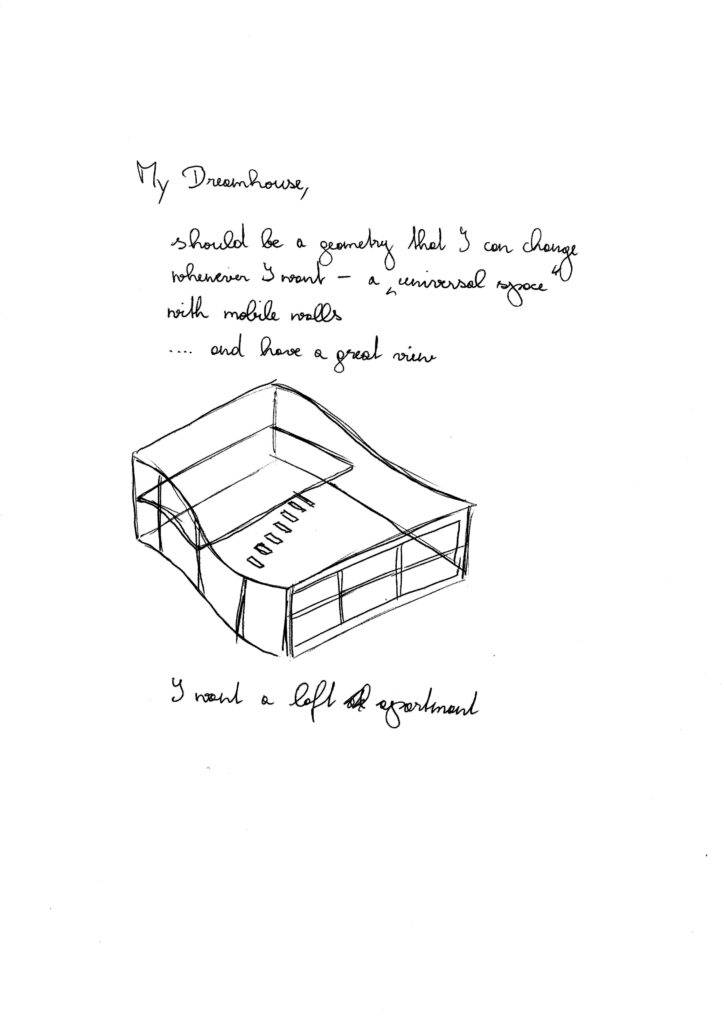 My Dreamhouse,
should be a geometry that I can change
whenever I want – a „universal space“
with mobile walls
.... and have a great view
I want a loft apartment